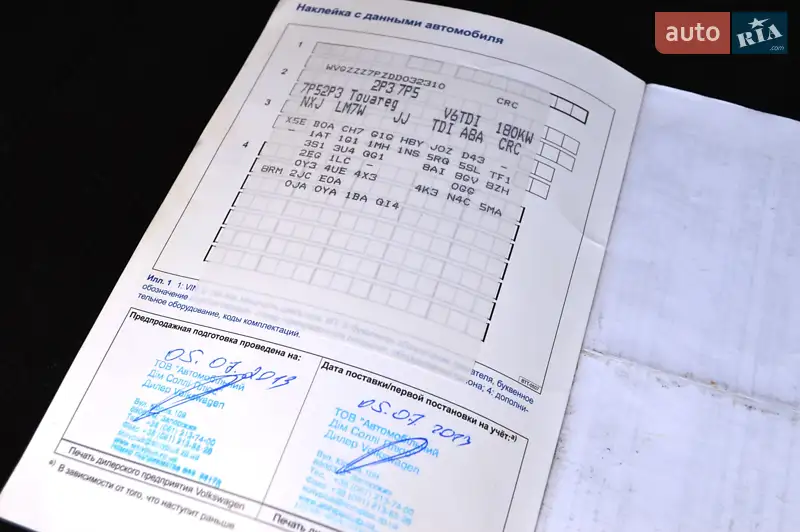 Наклейка с данными автомобиля
auto RIA .com
1
WVGZZZ7PZDD032310
2
2P3 7P5 CRC
7P52P3 Touareg V6TDI 180KW
3
NXJ LM7W JJ TDI A8A CRC
X5E B0A CH7 G1G HBY J0Z D43 -
- 1AT 1G1 1MH 1NS 5RG 5SL TF1
4
3S1 3U4 GG1 8AI 8GV 8ZH
2EG 1LC - 0GG
0Y3 4UE 4X3 4K3 N4C 5MA
8RM 2JC E0A
0JA 0YA 1BA GI4
Илл. 1 1: VIN
обозначение
тельное оборудование, коды комплектаций.
ателя, буквенное
она; 4: дополни-
Предпродажная подготовка проведена на:
05.07.2013
ТОВ "Автомобільний
Дім Соллі Плюс"
Дилер Volkswagen
Дата поставки/первой постановки на учёт:ᵃ⁾
05.07.2013
ТОВ "Автомобільний
Дім Соллі Плюс"
Дилер Volkswagen
Печать дилерского предприятия Volkswagen
Печать д
ᵃ⁾ В зависимости от того, что наступит раньше